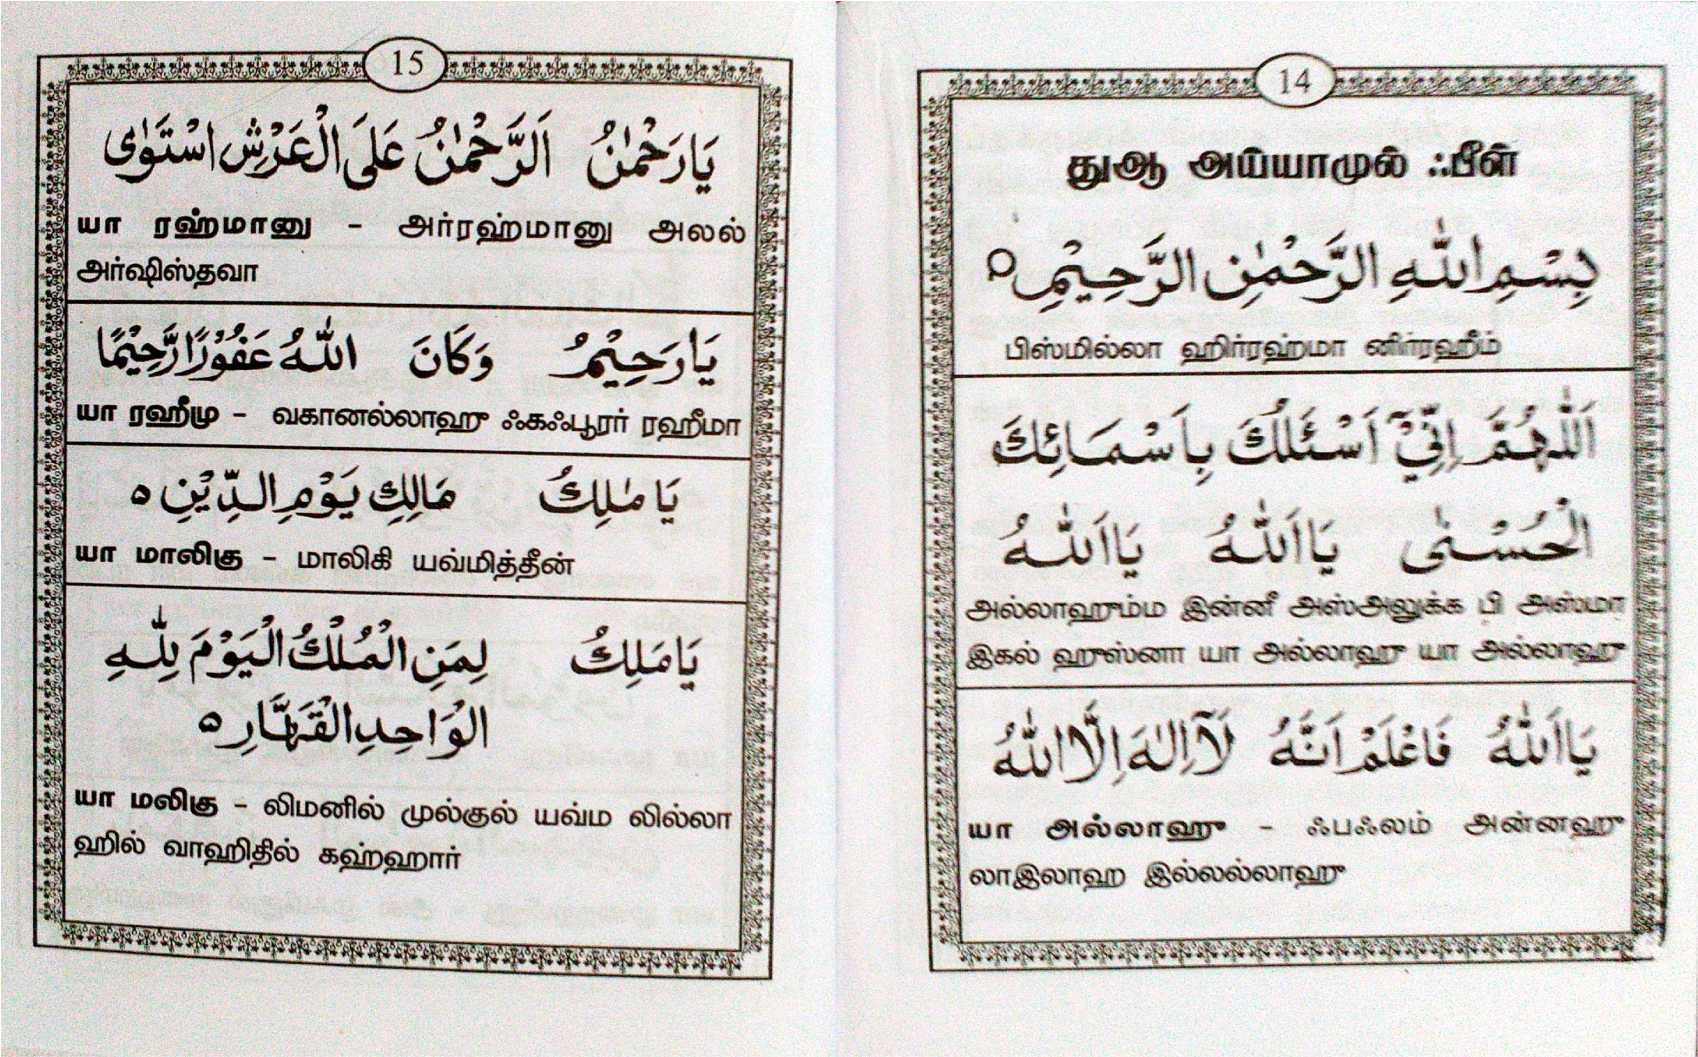 14
துஆ அய்யாமுல் ஃபீள்
بِسْمِ اللّٰهِ الرَّحْمٰنِ الرَّحِيْمِ ٥
பிஸ்மில்லா ஹிர்ரஹ்மா னிர்ரஹீம்
اَللّٰهُمَّ اِنِّيْٓ اَسْئَلُكَ بِاَسْمَائِكَ
الْحُسْنٰى يَا اَللّٰهُ يَا اَللّٰهُ
அல்லாஹும்ம இன்னீ அஸ்அலுக்க பி அஸ்மா
இகல் ஹுஸ்னா யா அல்லாஹு யா அல்லாஹு
يَا اَللّٰهُ فَاعْلَمْ اَنَّهُ لَآ اِلٰهَ اِلَّا اللّٰهُ
யா அல்லாஹு – ஃபஃலம் அன்னஹு
லாஇலாஹ இல்லல்லாஹு
15
يَا رَحْمٰنُ اَلرَّحْمٰنُ عَلَى الْعَرْشِ اسْتَوٰى
யா ரஹ்மானு – அர்ரஹ்மானு அலல்
அர்ஷிஸ்தவா
يَا رَحِيْمُ وَكَانَ اللّٰهُ غَفُوْرًا رَّحِيْمًا
யா ரஹீமு – வகானல்லாஹு ஃகஃபூரர் ரஹீமா
يَا مٰلِكُ مَالِكِ يَوْمِ الدِّيْنِ ٥
யா மாலிகு – மாலிகி யவ்மித்தீன்
يَا مَلِكُ لِمَنِ الْمُلْكُ الْيَوْمَ لِلّٰهِ
الْوَاحِدِ الْقَهَّارِ ٥
யா மலிகு – லிமனில் முல்குல் யவ்ம லில்லா
ஹில் வாஹிதில் கஹ்ஹார்